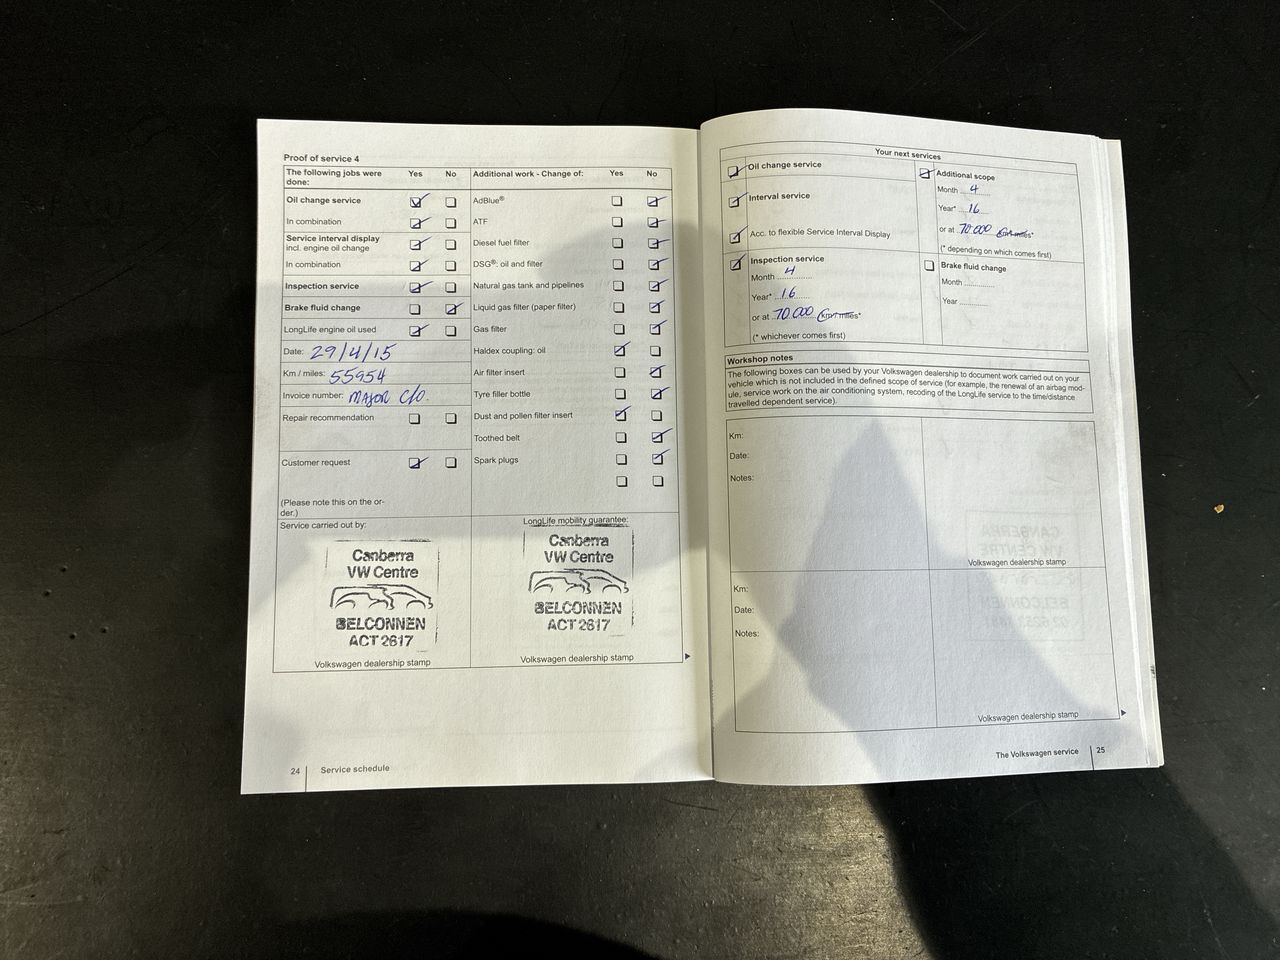 Proof of service 4
The following jobs were done: Yes No
Oil change service
In combination
Service interval display
incl. engine oil change
In combination
Inspection service
Brake fluid change
LongLife engine oil used
Date: 29/4/15
Km / miles: 55954
Invoice number: MAJOR C/O.
Repair recommendation
Customer request
(Please note this on the or-
der.)
Service carried out by:
Canberra
VW Centre
BELCONNEN
ACT 2617
Volkswagen dealership stamp
Additional work - Change of: Yes No
AdBlue®
ATF
Diesel fuel filter
DSG®: oil and filter
Natural gas tank and pipelines
Liquid gas filter (paper filter)
Gas filter
Haldex coupling: oil
Air filter insert
Tyre filler bottle
Dust and pollen filter insert
Toothed belt
Spark plugs
LongLife mobility guarantee:
Canberra
VW Centre
BELCONNEN
ACT 2617
Volkswagen dealership stamp
24 Service schedule
Your next services
Oil change service
Interval service
Acc. to flexible Service Interval Display
Inspection service
Month 4
Year* 16
or at 70.000 km/miles*
(* whichever comes first)
Additional scope
Month 4
Year* 16
or at 70 000 km/miles*
(* depending on which comes first)
Brake fluid change
Month ..............
Year ............
Workshop notes
The following boxes can be used by your Volkswagen dealership to document work carried out on your
vehicle which is not included in the defined scope of service (for example, the renewal of an airbag mod-
ule, service work on the air conditioning system, recoding of the LongLife service to the time/distance
travelled dependent service).
Km:
Date:
Notes:
Volkswagen dealership stamp
Km:
Date:
Notes:
Volkswagen dealership stamp
The Volkswagen service 25